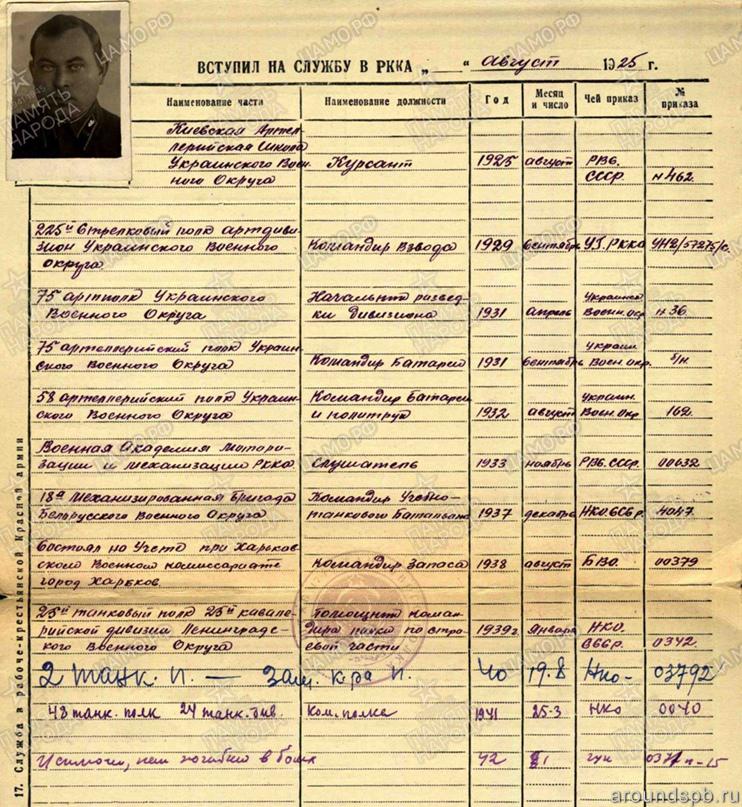 ВСТУПИЛ НА СЛУЖБУ В РККА „ “ август 1925 г.
Наименование части Наименование должности Год Месяц и число Чей приказ № приказа
Киевская Артил-
лерийская Школа
Украинского Воен- Курсант 1925 август РВС.
ного Округа СССР. № 462.
225й Стрелковый полк артдиви-
зион Украинского Военного Командир Взвода 1929 Сентябрь УП. РККА
Округа
75 артполк Украинского Начальник развед- Украинск
Военного Округа ки Дивизиона 1931 апрель Военн. Окр №36.
75 артиллерийский полк Украин- Украин.
ского Военного Округа Командир Батареи 1931 Сентябрь Воен. окр. б/н.
58 артиллерийский полк Украин- Командир Батареи Украин.
ского Военного Округа и политрук 1932 август Воен. Окр 162.
Военная Академия Мотори-
зации и Механизации РККА Слушатель 1933 ноябрь РВС. СССР. 00632
18я Механизированная Бригада Командир Учебно-
Белорусского Военного Округа танкового Батальона 1937 декабрь НКО. ССР.
Состоял на Учете при Харьков-
ском Военном Комиссариате Командир Запаса 1938 август БВО. 00379
город Харьков.
25й танковый полк 25й кавале- Помощник Коман-
рийской дивизии Ленинградс- дира полка по стро- 1939г. Январь НКО.
кого Военного Округа евой части СССР. 0342.
2 танк. п. — Зам. к-ра п. 40 19.8 Нко- 03792
48 танк. полк 24 танк. див. Ком. полка 1941 25-3 НКО 0040
Исключен, как погибший в боях 42 гук
17. Служба в рабоче-крестьянской Красной армии
ПАМЯТЬ
НАРОДА
ЦАМО.РФ
aroundspb.ru